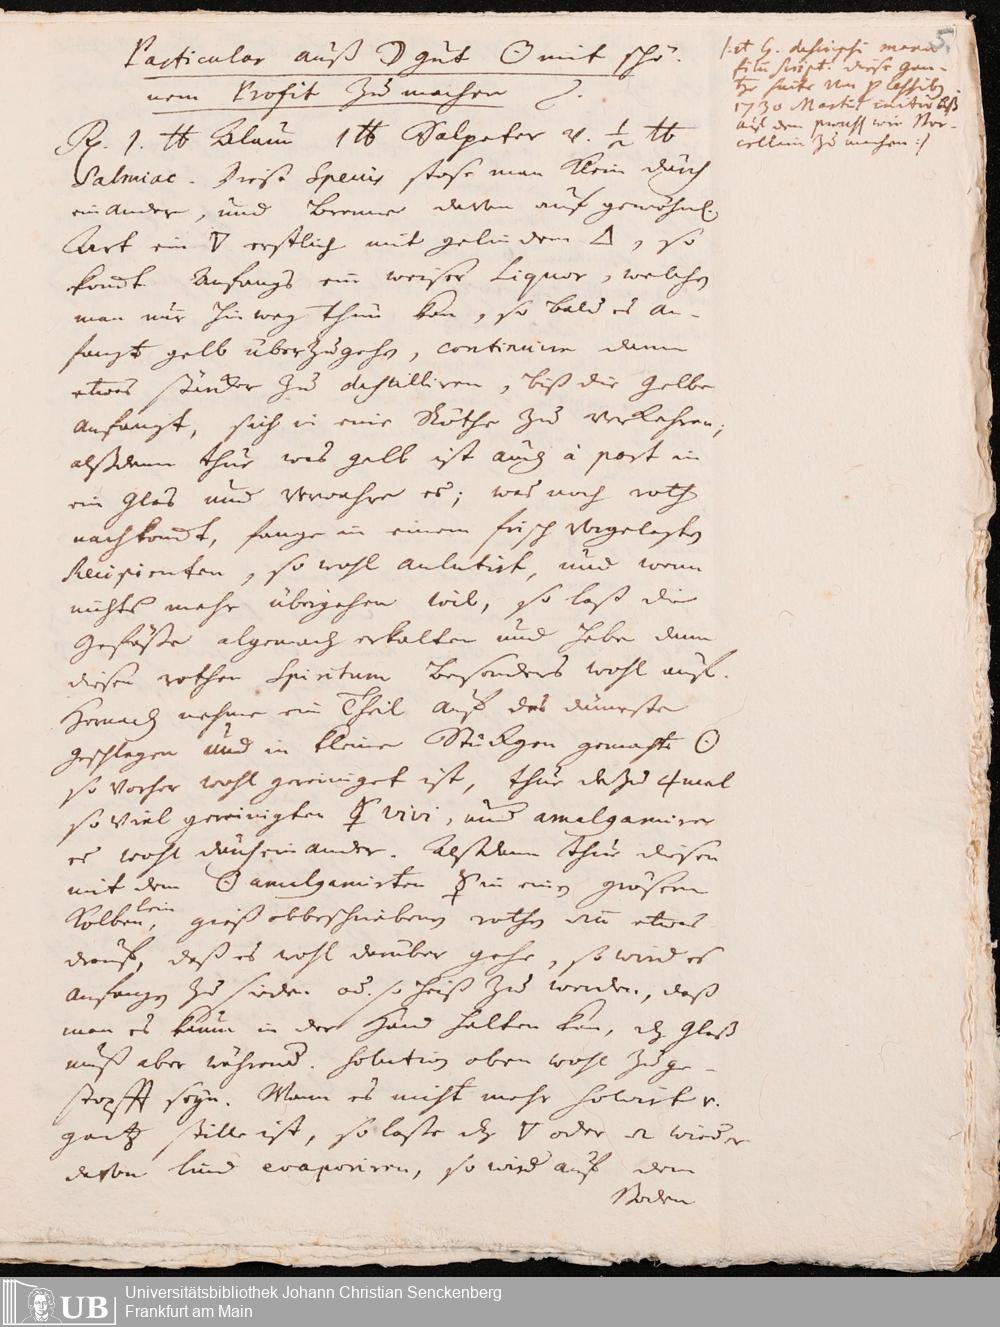 Particular auß ☽ gut ☉ mit schö-
nem Profit zu machen
℞. 1. ℔ Alaun 1 ℔ Salpeter u. ½ ℔
Salmiac. Diese Species stose man klein durch
einander, und brenne davon auf gewöhnl.
Art ein ▽ erstlich mit gelindem △, so
komt Anfangs ein weiser Liquor, welchen
man nur hinweg thun kan, so bald es an-
fangt gelb überzugehn, continuire dann
etwas stärcker zu destilliren, biß die Gelbe
anfangt, sich in eine Röthe zu verkehren;
alßdann thue was gelb ist auch à part in
ein Glas und verwahre es; was noch roth
nachkomt, fange in einem frisch vorgelegten
Recipienten, so wohl anlutirt, und wenn
nichts mehr übergehen wil, so laß die
Gefäße algemach erkalten und hebe dann
diesen rothen Spiritum besonders wohl auf.
Hernach nehme ein Theil auf das dünneste
geschlagen und in kleine Stückgen gemacht ☉
so vorher wohl gereiniget ist, thue dazu 4 mal
so viel gereinigten ☿ vivi, und amalgamire
es wohl durcheinander. Alßdann thue diesen
mit dem ☉ amalgamirten ☿ in einen grösern
Kolben lein, gieß obbeschriebenen rothen etwas
drauf, daß es wohl darüber gehe, so wird es
anfangen zu sieden od. so heiß zu werden, daß
man es kaum in der Hand halten kan, das Glaß
muß aber während. Solution oben wohl zuge-
stopfft seyn. Wann es nicht mehr solvirt u.
gantz stille ist, so laße das ▽ oder wieder
davon lind evaporiren, so wird auf dem
Boden
descripsi manu
script. diese gan-
tze Seite von
1730 Martii
auß dem wie Por-
cellain zu machen :/
5.
UB
Universitätsbibliothek Johann Christian Senckenberg
Frankfurt am Main